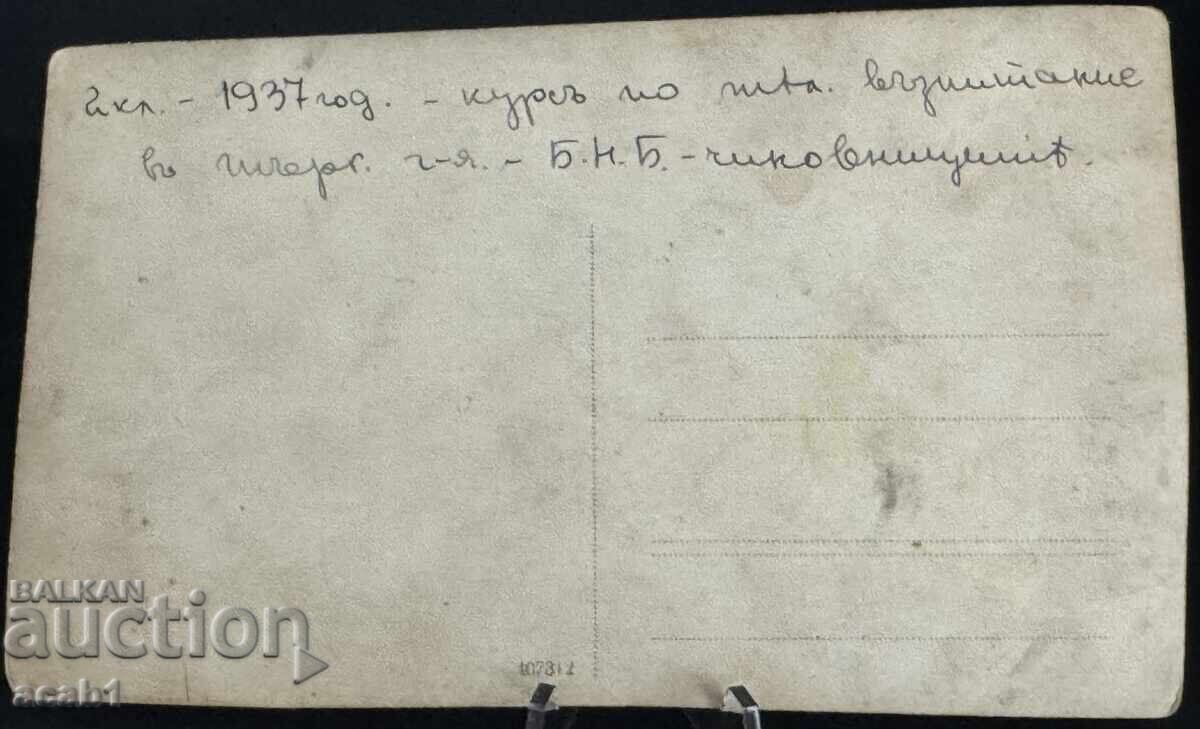 2 кл. - 1937 год. - курсъ по тѣл. възпитание
въ търг. г-я. - Б.Н.Б. - чиновницитѣ.
107312
BALKAN
auction
acab1